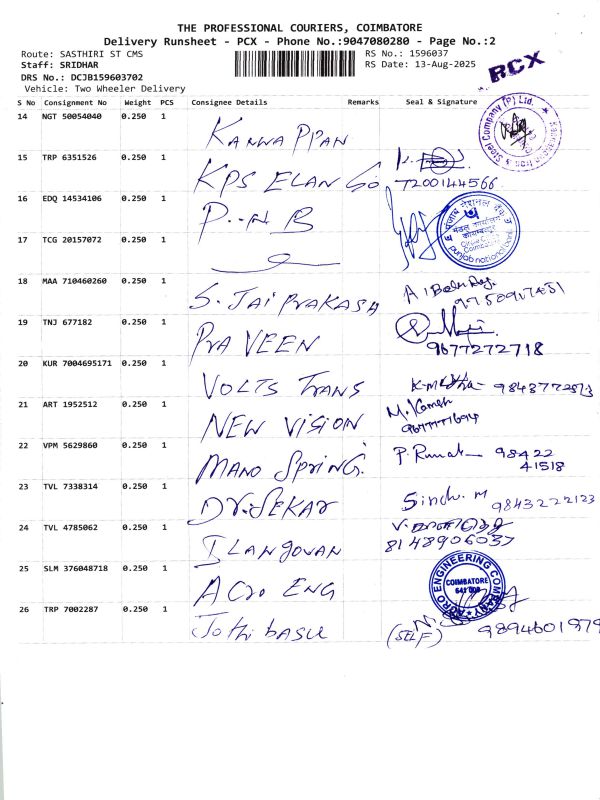 THE PROFESSIONAL COURIERS, COIMBATORE
Delivery Runsheet - PCX - Phone No.:9047080280 - Page No.:2
Route: SASTHIRI ST CMS RS No.: 1596037
Staff: SRIDHAR RS Date: 13-Aug-2025
DRS No.: DCJB159603702
Vehicle: Two Wheeler Delivery
PCX
S No Consignment No Weight PCS Consignee Details Remarks Seal & Signature
14 NGT 50054040 0.250 1 KANNA PPAN
Steel Company (P) Ltd.
15 TRP 6351526 0.250 1 KPS ELAN GO 7200144566
16 EDQ 14534106 0.250 1 P--N B
punjab national bank
17 TCG 20157072 0.250 1
18 MAA 710460260 0.250 1 S. JAI PRAKASH
19 TNJ 677182 0.250 1 PRAVEEN 9677272718
20 KUR 7004695171 0.250 1 VOLTS TRANS
21 ART 1952512 0.250 1 NEW VISION
22 VPM 5629860 0.250 1 MANO SPRING. 98422
41518
23 TVL 7338314 0.250 1 DR.SEKAR 9843222123
24 TVL 4785062 0.250 1 ILANGOVAN 8148906037
25 SLM 376048718 0.250 1 ACRO ENG
ACRO ENGINEERING COMPANY
COIMBATORE
26 TRP 7002287 0.250 1 Jothi basu (SELF)